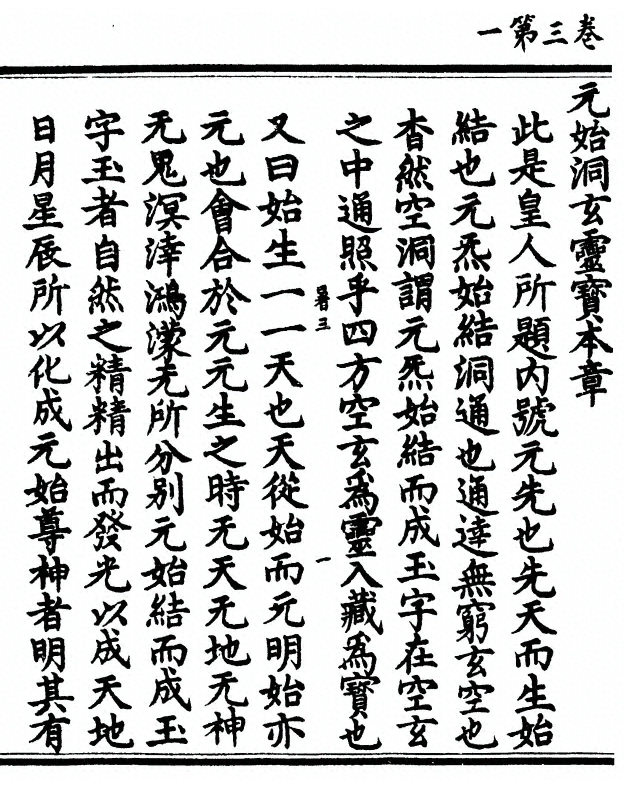 卷三第一
元始洞玄靈寶本章
此是皇人所題內號元先也先天而生始
結也元炁始結洞通也通達無窮玄空也
杳然空洞謂元炁始結而成玉字在空玄
之中通照乎四方空玄為靈入藏為寶也
暑三
一
又曰始生一一天也天從始而元明始亦
元也會合於元元生之時无天无地无神
无鬼溟涬鴻濛无所分別元始結而成玉
字玉者自然之精精出而發光以成天地
日月星辰所以化成元始尊神者明其有